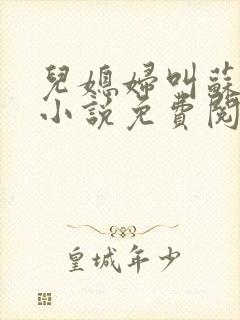 兒媳婦叫蘇
小說免費閱
皇城年少